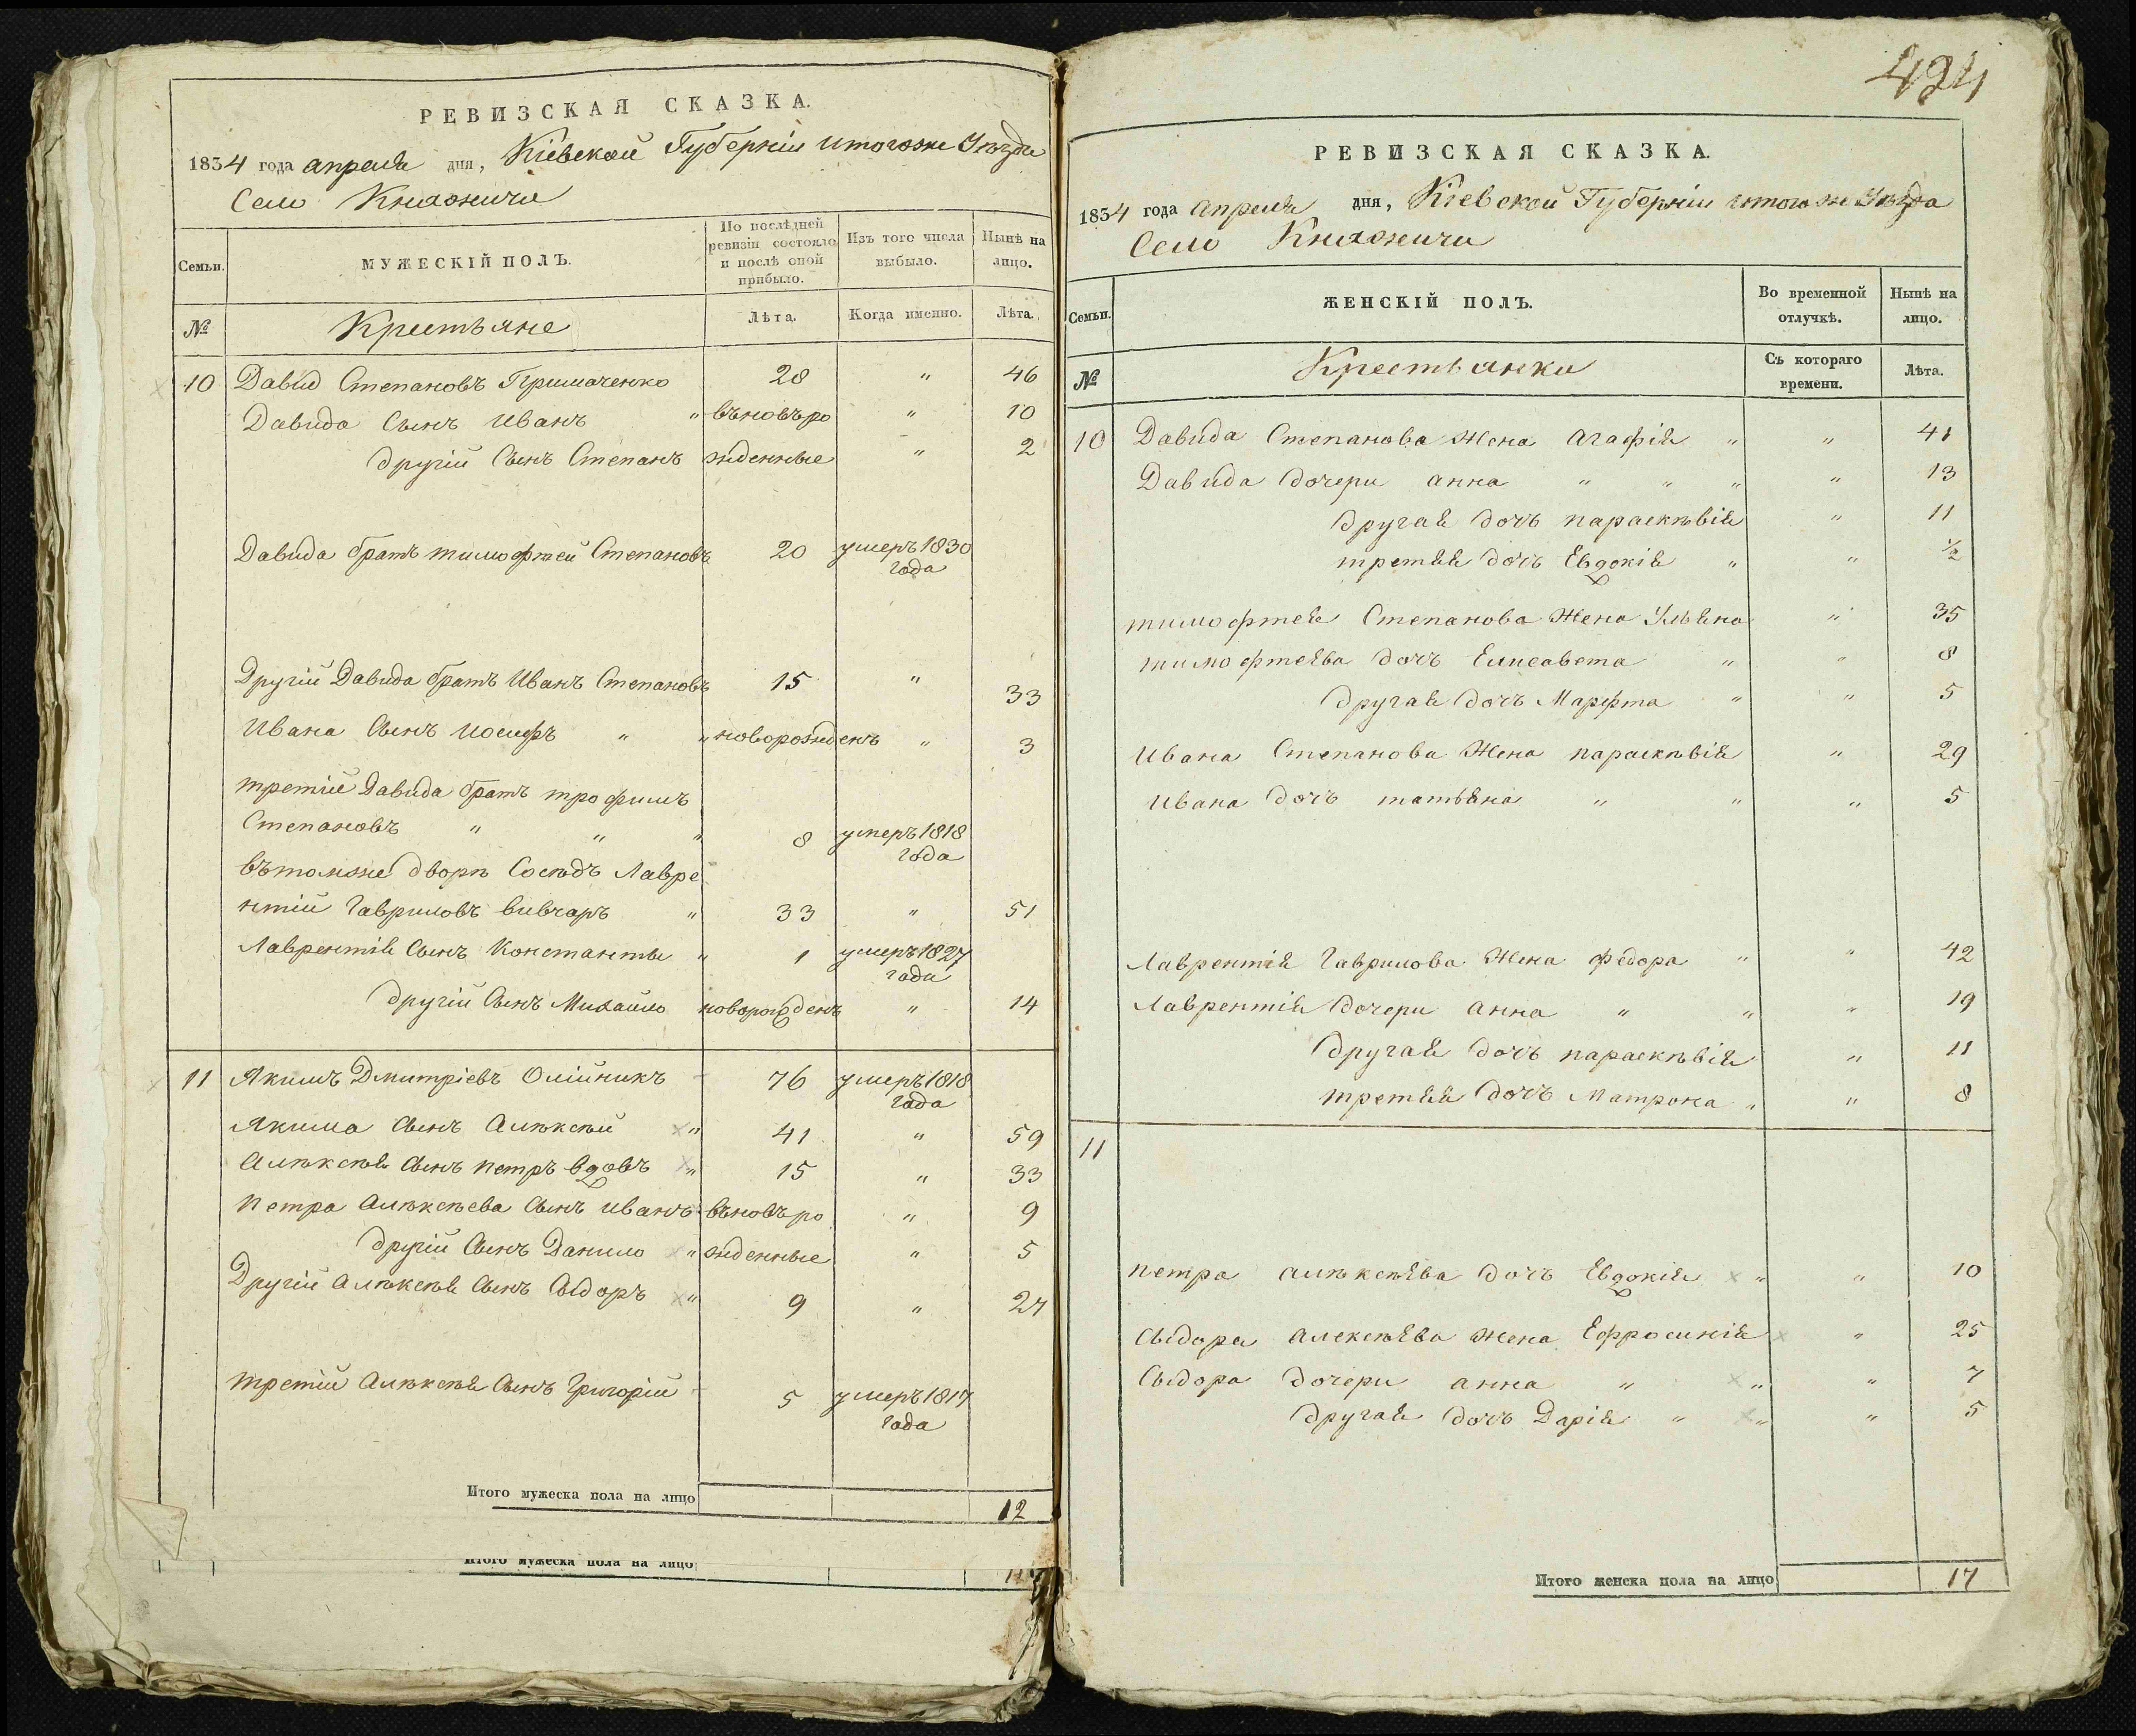 РЕВИЗСКАЯ СКАЗКА.
1834 года апреля дня, Кіевской Губерніи и того же Уѣзда
Село Княжичи
Семьи. МУЖЕСКІЙ ПОЛЪ. По послѣдней ревизіи состояло и послѣ оной прибыло. Изъ того числа выбыло. Нынѣ на лицо.
№ Крестьяне Лѣта. Когда именно. Лѣта.
10 Давид Степановъ Примаченко 28 " 46
Давида Сынъ Иванъ " вьновъро " 10
другій Сынъ Степанъ жденные " 2
Давида братъ тимофтей Степановъ 20 умеръ 1830
года
Другій Давида братъ Иванъ Степановъ 15 " 33
Ивана Сынъ Иосифъ " " новорожденъ " 3
третій Давида братъ трофимъ
Степановъ " " " 8 умеръ 1818
года
вътомже дворѣ Сосѣдъ Лавре
нтій Гавриловъ вивчаръ " 33 " 51
Лаврентія Сынъ Константы " 1 умеръ 1827
года
другій Сынъ Михайло новорожденъ " 14
11 Якимъ Дмитріевъ Олійникъ - 76 умеръ 1818
года
Якима Сынъ Алѣксѣй " 41 " 59
Алѣксѣя Сынъ петръ вдовъ " 15 " 33
петра Алѣксѣева Сынъ иванъ вьновъро " 9
другій Сынъ Данило " жденные " 5
Другій Алѣксѣя Сынъ Сыдоръ " 9 " 27
третій Алѣксѣя Сынъ Григорій - 5 умеръ 1817
года
Итого мужеска пола на лицо 12
Итого мужеска пола на лицо
424
РЕВИЗСКАЯ СКАЗКА.
1834 года апреля дня, Кіевской Губерніи итого же Уѣзда
Село Княжичи
Семьи. ЖЕНСКІЙ ПОЛЪ. Во временной отлучкѣ. Нынѣ на лицо.
№ Крестьянки Съ котораго времени. Лѣта.
10 Давида Степанова Жена агафія " " 41
Давида дочери анна " " " " 13
другая дочь параскѣвія " 11
третяя дочь Евдокія " " ½
тимофтея Степанова Жена Ульяна " 35
тимофтеява дочъ Елисавета " " 8
другая дочь Марфта " " 5
Ивана Степанова Жена параскѣвія " 29
Ивана дочь татьяна " " " 5
Лаврентія Гаврилова Жена федора " " 42
Лаврентія дочери анна " " " 19
другая дочь параскѣвія " 11
третяя дочь Матрона " " 8
11
петра алѣксѣява дочь Евдокія " " 10
Сыдора алексѣява жена Ефросинія " 25
Сыдора дочери анна " " " 7
другая дочь Дарія " " " 5
Итого женска пола на лицо 17